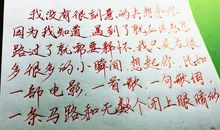 我没有很刻意的去想念你
因为我知道，遇到了就应该感恩
路过了就需要释怀，我只是在很
多很多的小瞬间 想起你，比如
一部电影，一首歌，一句歌词
一条马路和无数个闭上眼睛的